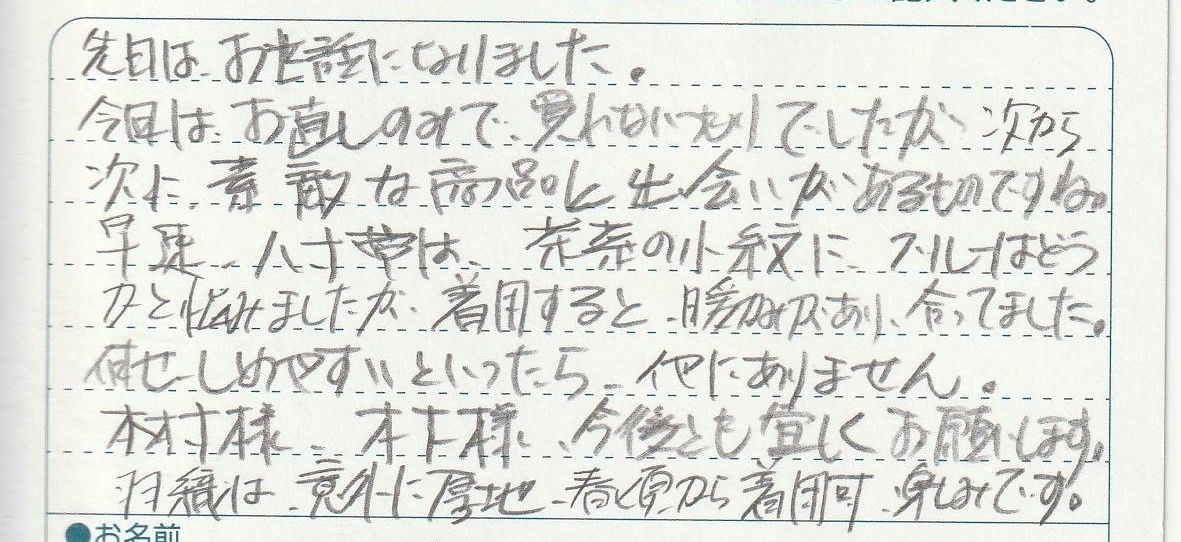 先日は、お世話になりました。
今日は、お直しのみで、買わないつもりでしたが、次から
次に、素敵な商品と出会いがあるものですね。
早速、八寸帯は、茶系の小紋に、ブルーはどう
かと悩みましたが、着用すると、暖かみがあり、合ってました。
何せ、しめやすいといったら、他にありません。
木村様、木下様、今後とも宜しくお願いします。
羽織は、意外に厚地、春頃から着用可、楽しみです。
●お名前